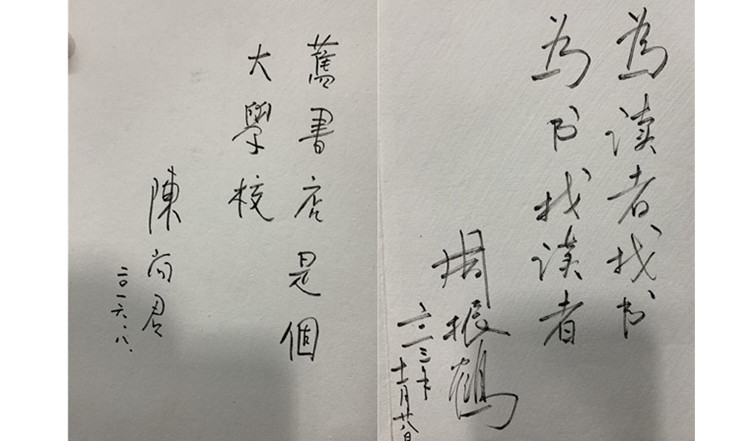 舊書店是個
大學校
陳尚君
二〇一六.八.
為读者找书
為书找读者
周振鶴
二〇一三年
十一月廿八日